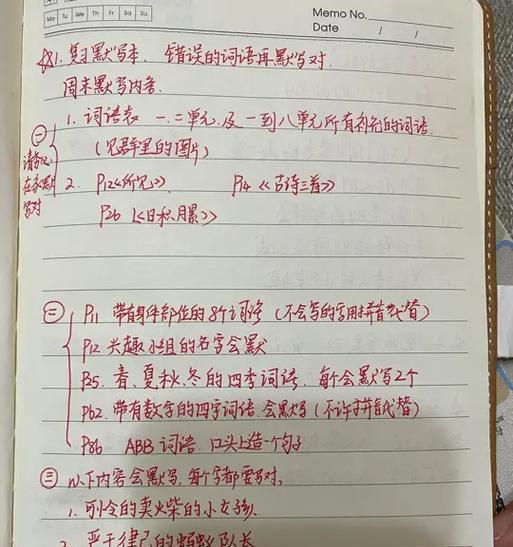 Mo Tu We Th Fr Sa Su
Memo No.
Date / /
1. 复习默写本. 错误的词语再默写对.
周末默写内容.
㊀
1. 词语表 一.二单元.及一到八单元所有补充的词语.
(见群里的图片)
在家默
写对
2. P12《所见》 P14《古诗三首》
P26《日积月累》
㊁ P11 带有身体部位的8个词语(不会写的字用拼音代替)
P12 兴趣小组的名字会默
P35. 春、夏秋、冬的四季词语, 每个会默写2个
P62. 带有数字的四字词语.会默写(不许拼音代替)
P86 ABB 词语. 口头上造一个句子
㊂ 以下内容会默写.每个字都要写对.
1. 可怜的卖火柴的小女孩.
2. 严于律己的蚂蚁队长